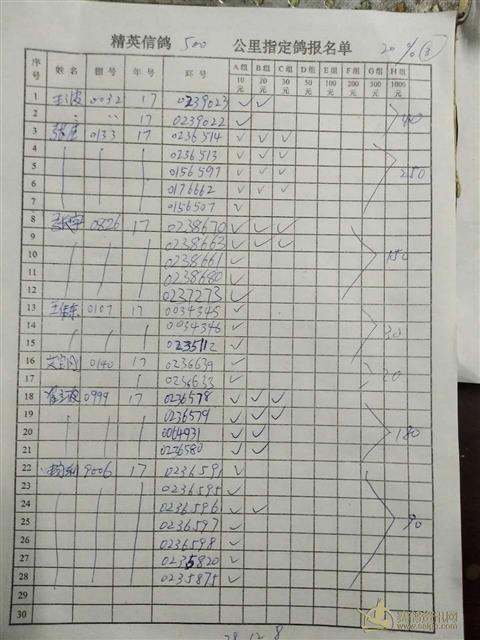 精英信鸽 500 公里指定鸽报名单 20%
序号 姓名 棚号 年号 环号 A组10元 B组20元 C组30元 D组50元 E组100元 F组200元 G组500元 H组1000元
1 0032 17 0239023 ✓ ✓
2 〃 17 0239022 ✓
3 0133 17 0236514 ✓ ✓ ✓
4 0236513 ✓ ✓ ✓
5 0156597 ✓ ✓ ✓
6 0176662 ✓ ✓ ✓
7 0156507 ✓
250
8 0826 17 0238670 ✓ ✓ ✓
9 0238663 ✓ ✓ ✓
10 0238661 ✓
11 0238680 ✓
12 0237273 ✓
150
13 0107 17 0034345 ✓
14 0034346 ✓
15 0235112 ✓
30
16 0140 17 0236639 ✓
17 0236633 ✓
20
18 0999 17 0236578 ✓ ✓ ✓
19 0236579 ✓ ✓ ✓
20 0064931 ✓ ✓
21 0236580 ✓ ✓
180
22 9006 17 0236591 ✓
23 0236595 ✓
24 0236596 ✓ ✓
25 0236597 ✓
26 0236598 ✓
27 0235820 ✓
28 0235875 ✓
90
29
30
28 12 8